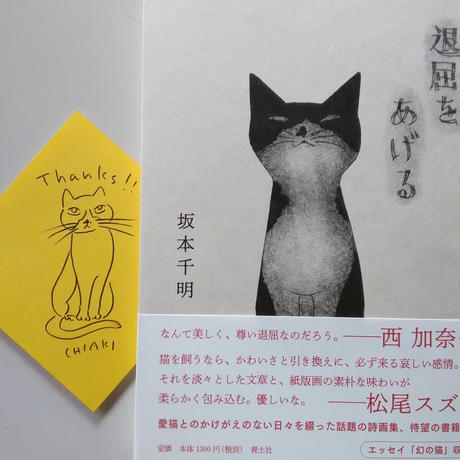 Thanks!!
CHIAKI
退屈を
あげる
坂本千明
なんて美しく、尊い退屈なのだろう。――西 加奈
猫を飼うなら、かわいさと引き換えに、必ず来る哀しい感情。
それを淡々とした文章と、紙版画の素朴な味わいが
柔らかく包み込む。優しいな。――松尾スズ
愛猫とのかけがえのない日々を綴った話題の詩画集、待望の書籍
定価 本体1300円(税別) 青土社
エッセイ「幻の猫」収